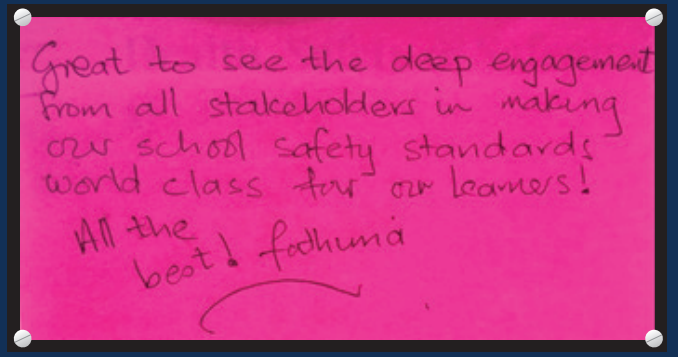 Great to see the deep engagement
from all stakeholders in making
our school safety standards
world class for our learners!
All the
best! fadhuma